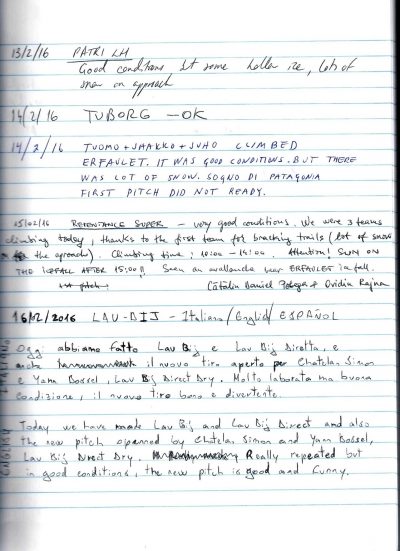 13/2/16 PATRI LH
Good conditions but some hollow ice, lots of
snow on approach
14/2/16 TUBORG - OK
14/2/16 TUOMO + JAAKKO + JUHO CLIMBED
ERFAULET. IT WAS GOOD CONDITIONS. BUT THERE
WAS LOT OF SNOW. SOGNO DI PATAGONIA
FIRST PITCH DID NOT READY.
15/02/16 REPENTANCE SUPER - very good conditions. We were 3 teams
climbing today, thanks to the first team for breaching trails (lot of snow
the aproach). Climbing time: 10:00 - 15:00. Attention! SUN ON
THE ICEFALL AFTER 15:00!! Seen an avalanche near ERFAULET icefall.
Cătălin Daniel & Ovidiu
16/2/2016 LAU-BIJ - Italiano/English/ESPAÑOL
ITALIANO
Oggi abbiamo fatto Lau Bij e Lau Bij Diretta, e
anche il nuovo tiro aperto per Chatelan Simon
e Yann Bossel, Lau Bij Direct Dry. Molto laborata ma buona
condizione, il nuovo tiro bono e divertente.
ENGLISH
Today we have made Lau Bij and Lau Bij Direct and also
the new pitch openned by Chatelan Simon and Yann Bossel,
Lau Bij Direct Dry. Really repeated but
in good conditions, the new pitch is good and funny.